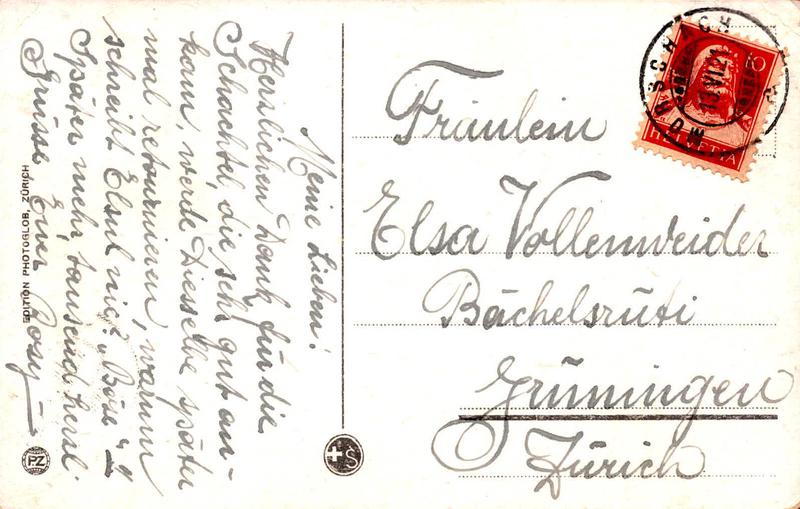 Meine Lieben!
Herzlichen Dank für die
Schachtel, die sehr gut an-
kam, werde Diesselbe später
mal retournieren, warum
schreibt Elsul nie? „Böse"
Später mehr, tausend herzl.
Grüsse Euer Rosy
EDITION PHOTOGLOB, ZÜRICH
PZ
S
Fräulein
Elsa Vollenweider
Bächelsrüti
Grüningen
Zürich
RORSCHACH
13.VI.21
10
HELVETIA